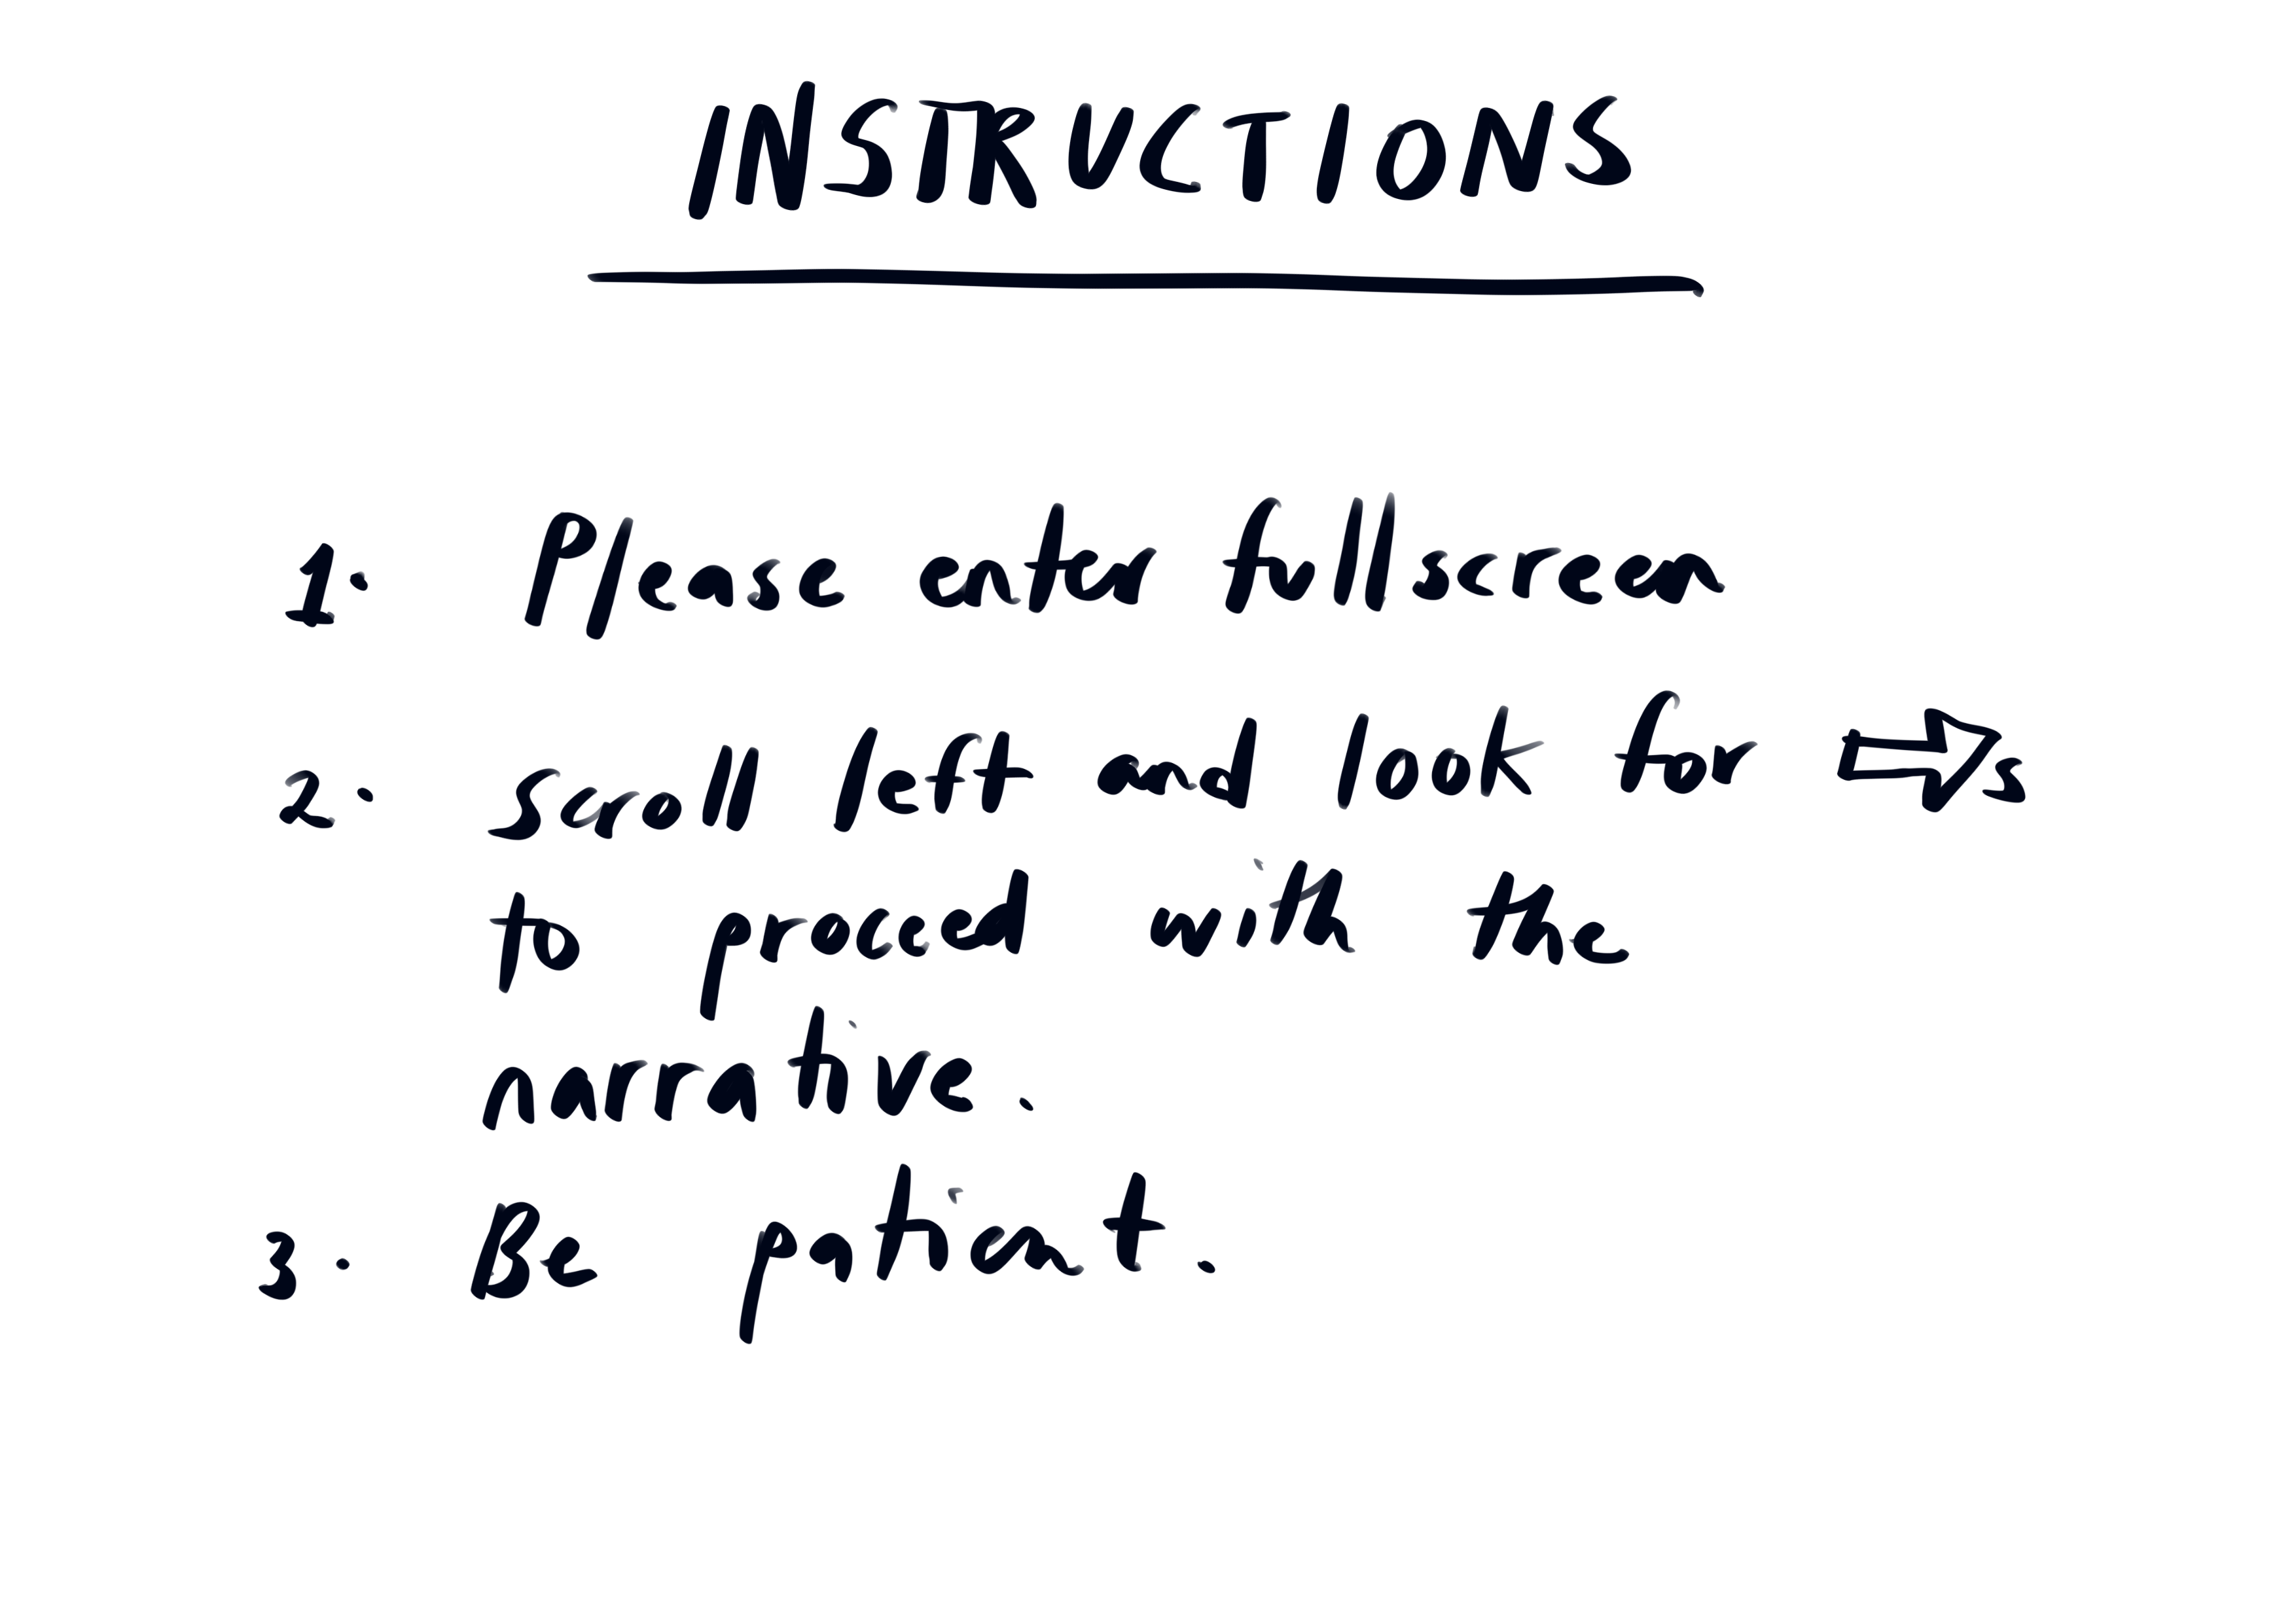 INSTRUCTIONS
1. Please enter fullscreen
2. scroll left and look for ⇨s
to proceed with the
narrative.
3. Be patient.